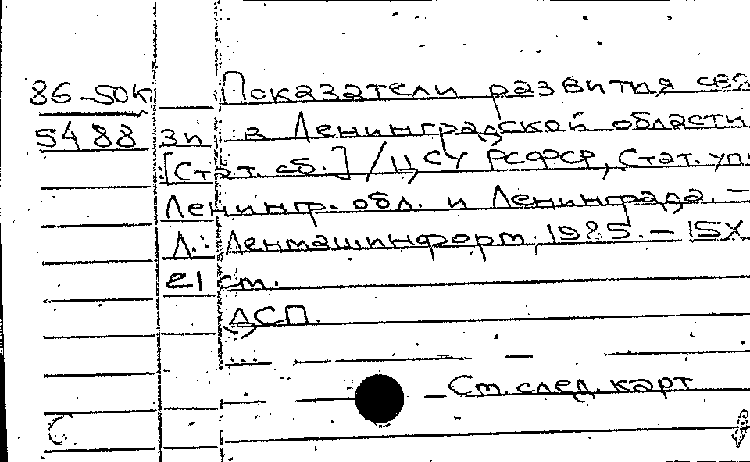 86-50к Показатели развития свя
5488 зп в Ленинградской области
[Стат. сб.] / ЦСУ РСФСР, Стат. уп.
Ленингр. обл. и Ленинграда. –
Л.: Ленмашинформ, 1985. – 15X
21 см.
ДСП.
См. след. карт
С.